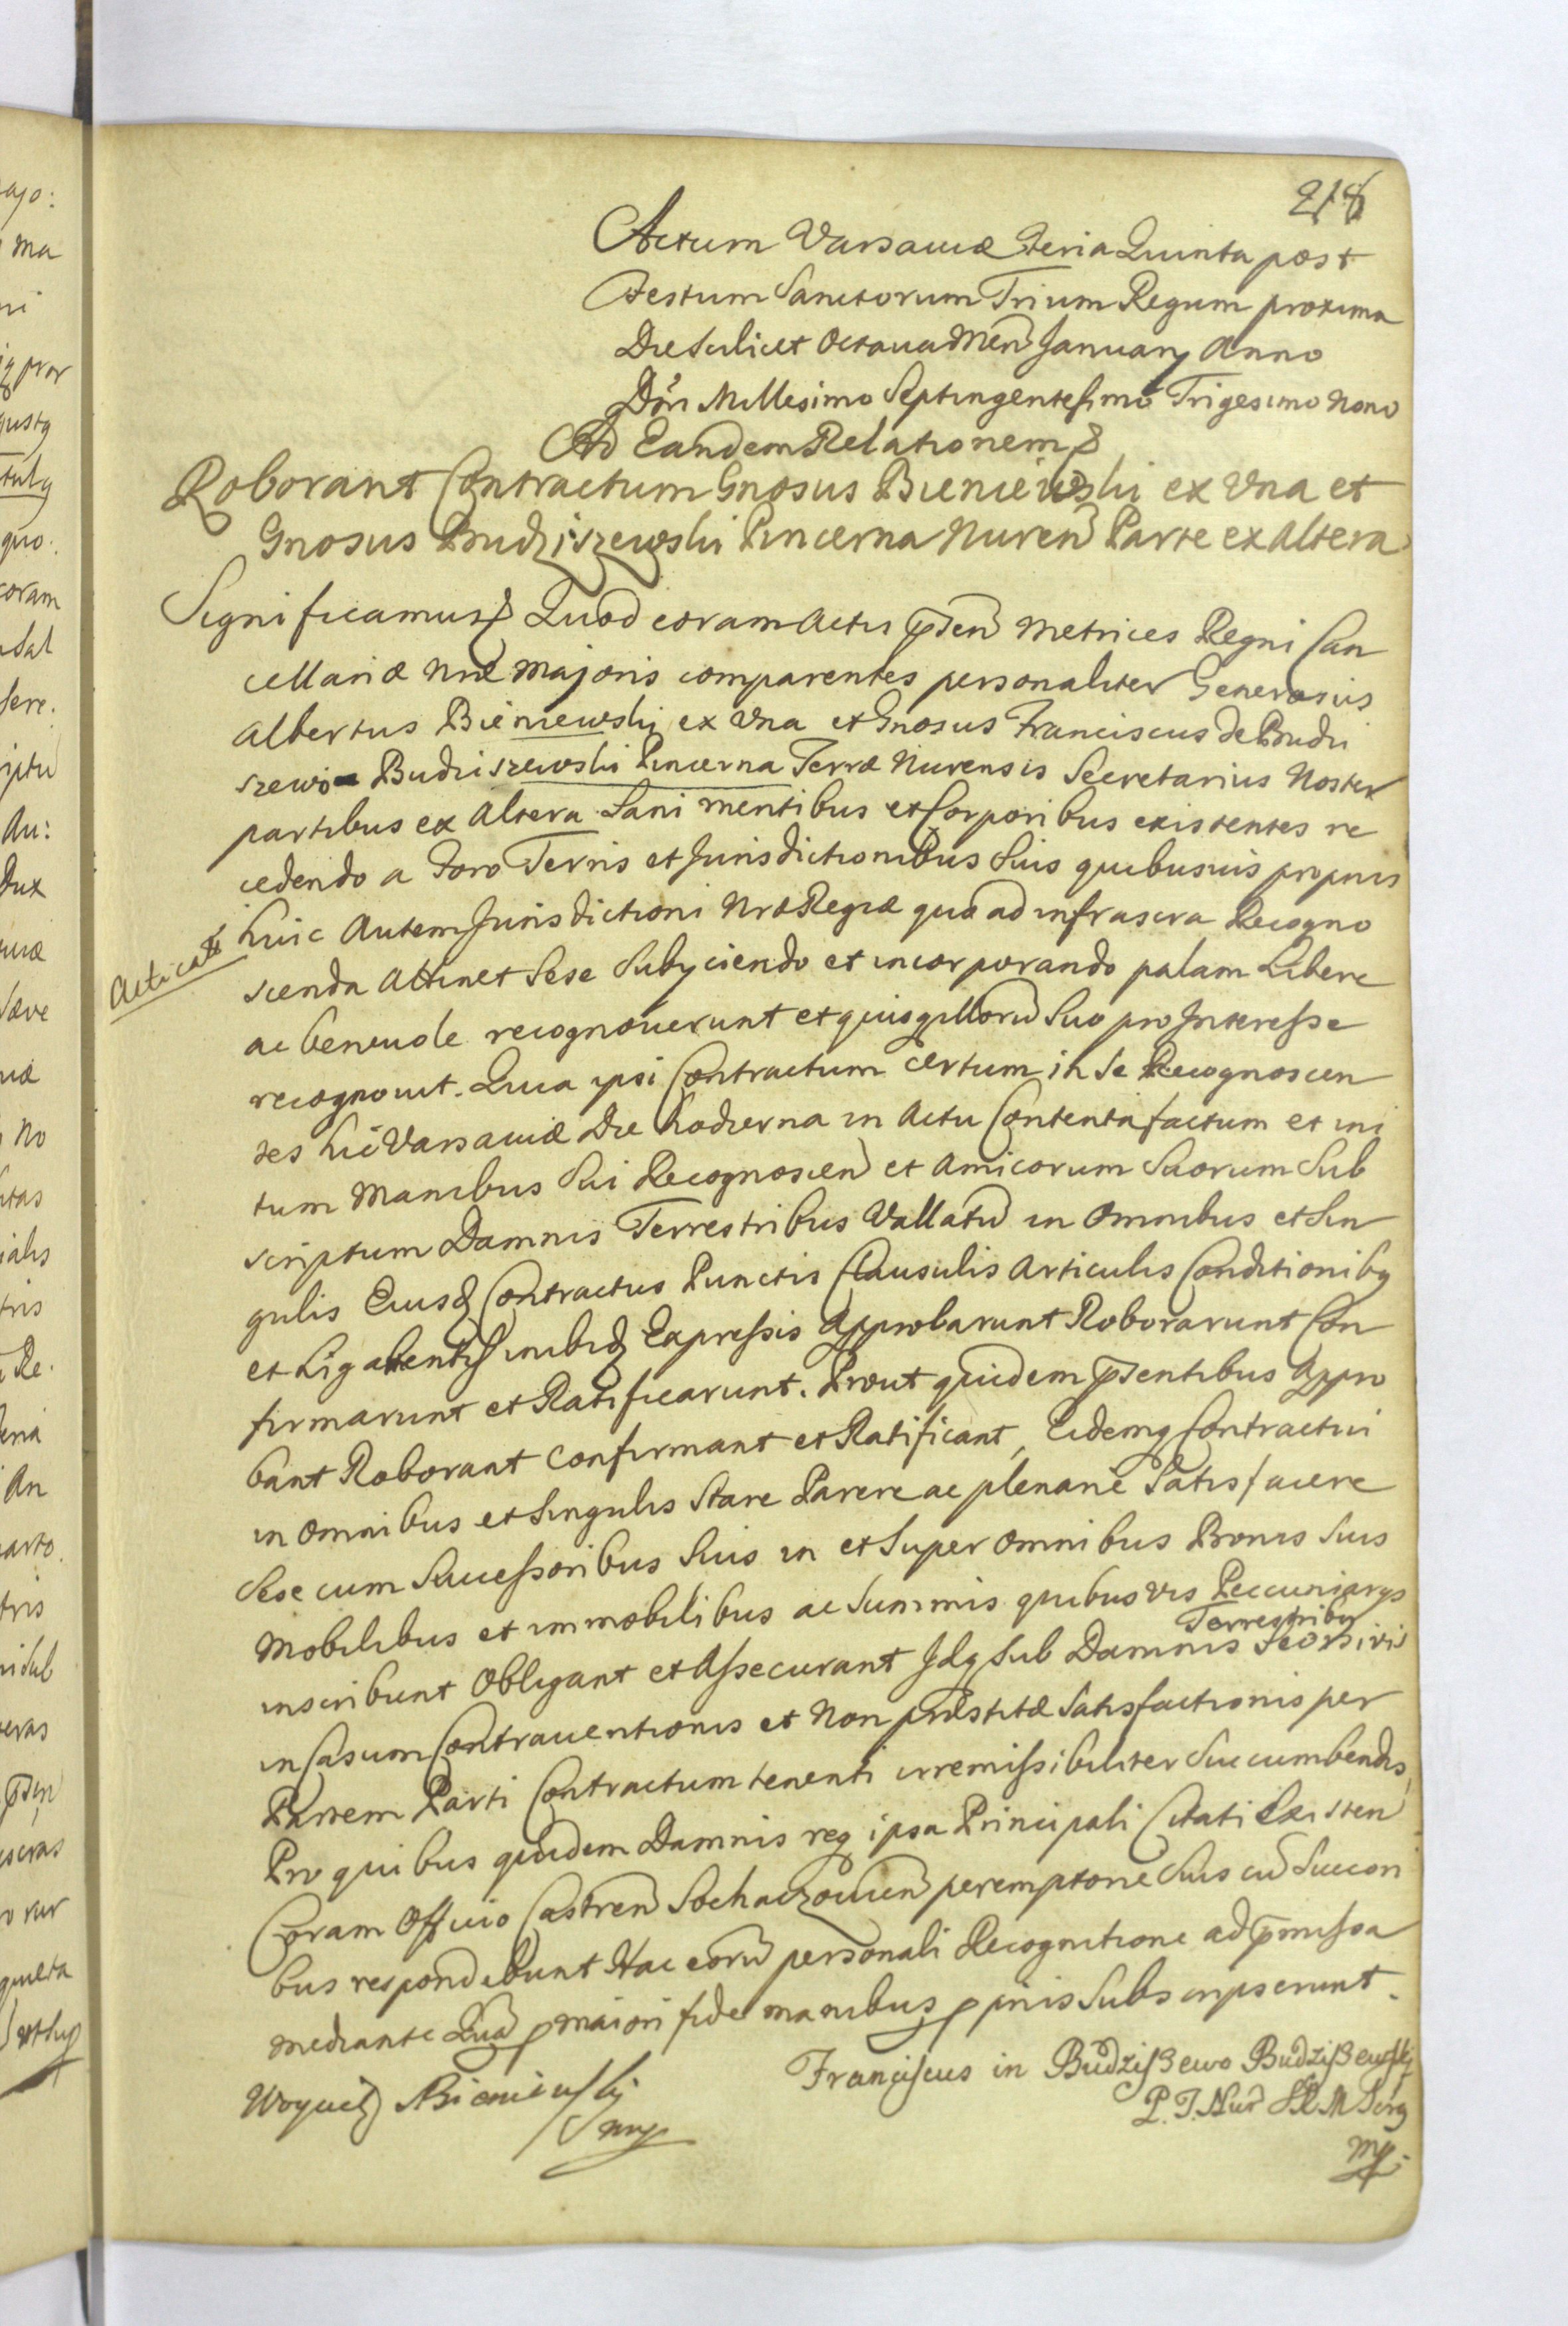 218
Actum Varsaviæ Feria Quinta post
Festum Sanctorum Trium Regum proxima
Die Scilicet Octaua Men̄ January Anno
Dn̄i Millesimo Septingentesimo Trigesimo Nono
Ad Eandem Relationem
Roborant Contractum Gnosus Bieniewski ex Vna et
Gnosus Budziszewski Pincerna Nuren̄ Parte ex Altera
Significamus Quod coram Actis p̄sen̄ Metrices Regni Can
cellariæ Nr̄æ Majoris comparentes personaliter Generosus
Albertus Bieniewski ex Vna et Gnosus Franciscus de Budzi
szewo Budziszewski Pincerna Terræ Nurensis Secretarius Noster
partibus ex Altera Sani mentibus et Corporibus existentes re
cedendo a Foro Terris et Jurisdictionibus Suis quibusuis proprijs
huic Autem Jurisdictioni Nræ Regiæ quo ad infrascra Recogno
Acticat
scenda Attinet Sese Subyciendo et incorporando palam Libere
ac beneuole recognouerunt et quisq illorū Suo pro Interesse
recognouit. Quia ipsi Contractum certum in Se Recognoscen
tes hic Varsauiæ Die hodierna in Actu Contenta factum et ini
tum Manibus Sui Recognoscen̄ et Amicorum Suorum Sub
scriptum Damnis Terrestribus Vallatū in Omnibus et Sin
gulis Eiusd Contractus Punctis Clausulis Articulis Conditionibq
et Ligamentis inibid Expressis Approbarunt Roborarunt Con
firmarunt et Ratificarunt. Prout quidem p̄sentibus Appro
bant Roborant Confirmant et Ratificant, Eidemq Contractui
in omnibus et Singulis Stare Parere ac plenarie Satisfacere
Sese cum Successoribus Suis in et Super Omnibus Bonis Suis
Mobilibus et immobilibus ac Summis quibusvis Peccuniarys
Terrestribus
inscribunt Obligant et Assecurant Idq Sub Damnis
in Casum Contrauentionis et Non præstitæ Satisfactionis per
Partem Parti Contractum tenenti irremissibiliter Succumbendis
Pro quibus quidem Damnis req ipsa Principali Citati Existen̄
Coram Officio Castren̄ Sochaczouien̄ peremptorie Suis cū Succori
bus respondebunt Hac eorū personali Recognitione ad p̄missa
mediante Qua p maiori fide manibus ppriis Subscripserunt.
Woyciech Bieniewski
mp
Franciscus in Budziszewo Budziszewski
P. T. Nur S R M Scrg
mp.